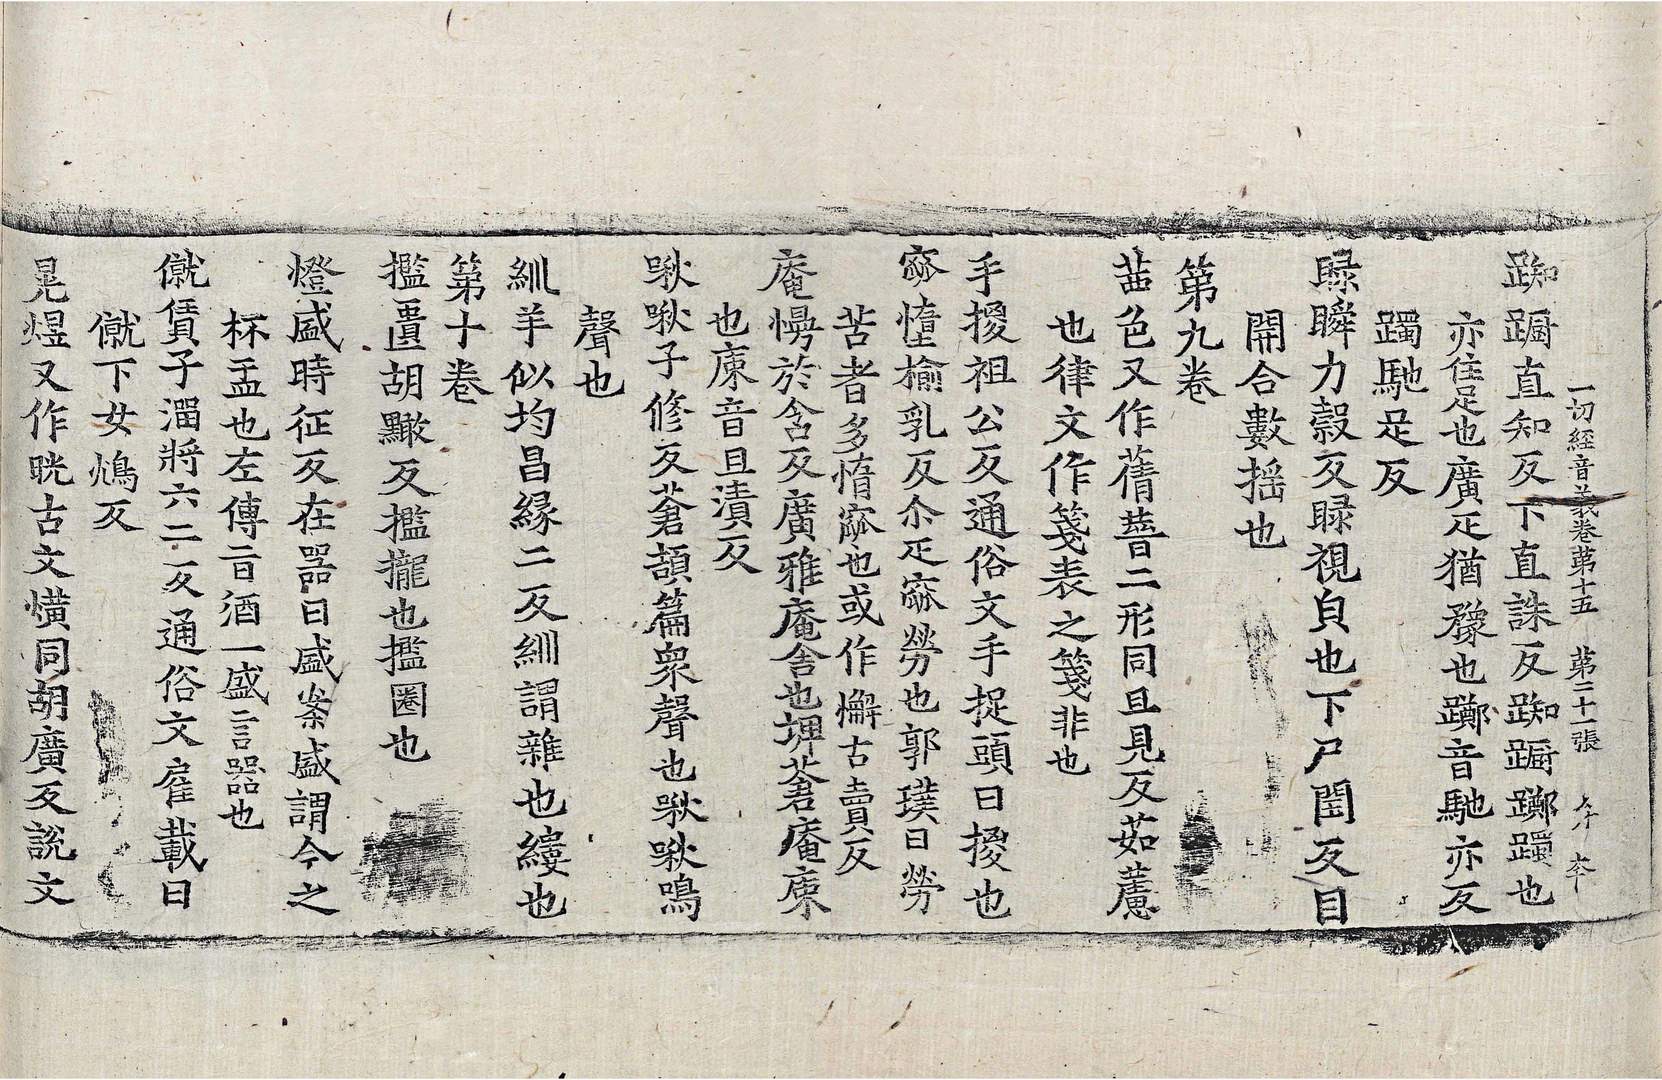 一切經音義卷第十五 第二十一張
踟蹰直知反下直誅反踟蹰躑躅也
亦住足也廣疋猶豫也躑音馳亦反
躅馳足反
睩瞬力穀反睩視皃也下尸閏反目
開合數揺也
第九卷
茜色又作蒨𦻏二形同且見反茹藘
也律文作箋表之箋非也
手㨑祖公反通俗文手捉頭曰㨑也
窳惰榆乳反尒疋窳勞也郭璞曰勞
苦者多惰窳也或作懈古賣反
庵幔於含反廣雅庵舍也埤蒼庵廩
也廩音且漬反
啾啾子修反蒼頡篇衆聲也啾啾鳴
聲也
紃羊似均昌縁二反紃謂雜也縷也
第十卷
㨫匱胡黤反㨫櫳也㨫圈也
燈盛時征反在器曰盛案盛謂今之
杯盂也左傳旨酒一盛言器也
僦賃子溜將六二反通俗文雇載曰
僦下女鴆反
晃煜又作晄古文熿同胡廣反説文